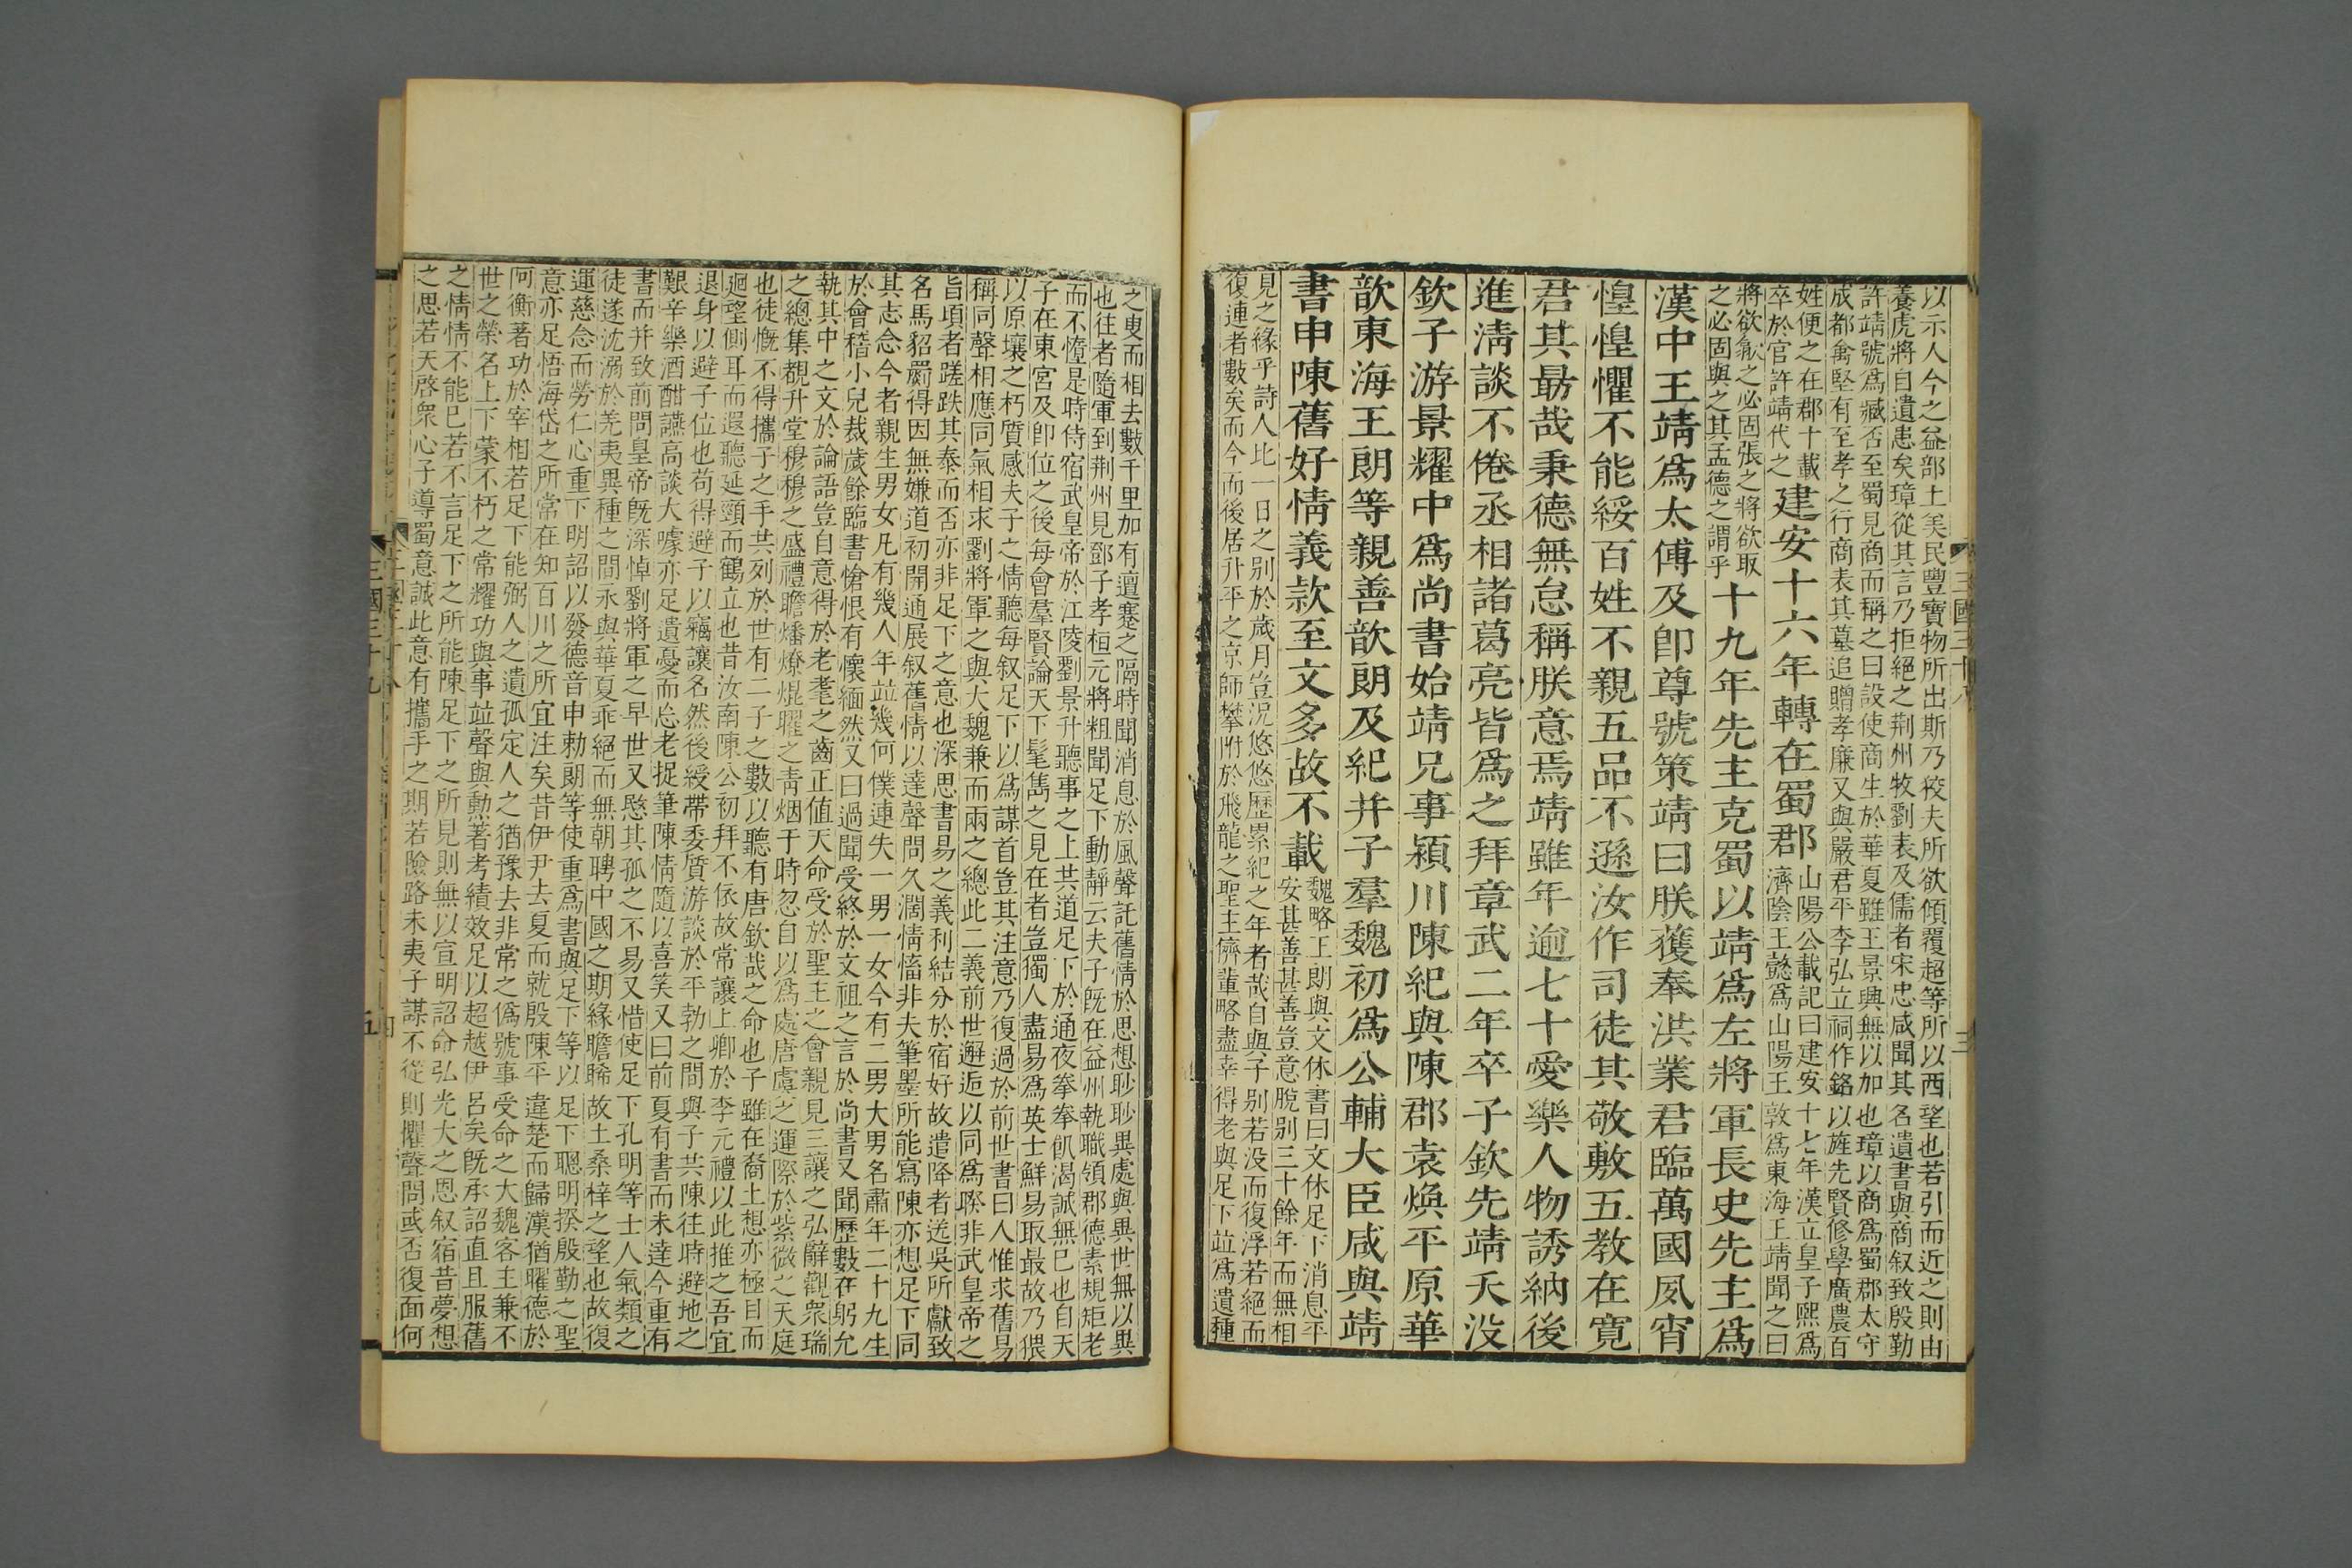 以示人今之益部土美民豐寶物所出斯乃狡夫所欲傾覆超等所以西望也若引而近之則由
養虎將自遺患矣璋從其言乃拒絕之荆州牧劉表及儒者宋忠咸聞其名遺書與商叙致殷勤
許靖號爲臧否至蜀見商而稱之曰設使商生於華夏雖王景興無以加也璋以商爲蜀郡太守
成都禽堅有至孝之行商表其墓追贈孝廉又與嚴君平李弘立祠作銘以旌先賢修學廣農百
姓便之在郡十載
卒於官許靖代之
建安十六年轉在蜀郡
山陽公載記曰建安十七年漢立皇子熙爲
濟陰王懿爲山陽王敦爲東海王靖聞之曰
將欲歙之必固張之將欲取
之必固與之其孟德之謂乎
十九年先主克蜀以靖爲左將軍長史先主爲
漢中王靖爲太傅及卽尊號策靖曰朕獲奉洪業君臨萬國夙宵
惶惶懼不能綏百姓不親五品不遜汝作司徒其敬敷五教在寬
君其勗哉秉德無怠稱朕意焉靖雖年逾七十愛樂人物誘納後
進淸談不倦丞相諸葛亮皆爲之拜章武二年卒子欽先靖夭沒
欽子游景耀中爲尚書始靖兄事穎川陳紀與陳郡袁煥平原華
歆東海王朗等親善歆朗及紀并子羣魏初爲公輔大臣咸與靖
書申陳舊好情義款至文多故不載
魏略王朗與文休書曰文休足下消息平
安甚善甚善豈意脫别三十餘年而無相
見之緣乎詩人比一日之别於歲月豈況悠悠歷累紀之年者哉自與子别若没而復浮若絕而
復連者數矣而今而後居升平之京師攀附於飛龍之聖主儕輩略盡幸得老與足下並爲遺種
三國三十八
三
之叟而相去數千里加有邅蹇之隔時聞消息於風聲託舊情於思想眇眇異處與異世無以異
也往者隨軍到荆州見鄧子孝桓元將粗聞足下動靜云夫子旣在益州執職領郡德素規矩老
而不憜是時侍宿武皇帝於江陵劉景升聽事之上共道足下於通夜拳拳飢渴誠無已也自天
子在東宮及卽位之後每會羣賢論天下髦雋之見在者豈獨人盡易爲英士鮮易取最故乃猥
以原壤之朽質感夫子之情聽每叙足下以爲謀首豈其注意乃復過於前世書曰人惟求舊易
稱同聲相應同氣相求劉將軍之與大魏兼而兩之總此二義前世邂逅以同爲睽非武皇帝之
旨頃者蹉跌其泰而否亦非足下之意也深思書易之義利結分於宿好故遣降者送吳所獻致
名馬貂罽得因無嫌道初開通展叙舊情以達聲問久濶情慉非夫筆墨所能寫陳亦想足下同
其志念今者親生男女凡有幾人年並幾何僕連失一男一女今有二男大男名肅年二十九生
於會稽小兒裁歲餘臨書愴恨有懷緬然又曰過聞受終於文祖之言於尚書又聞歷數在躬允
執其中之文於論語豈自意得於老耄之齒正值天命受於聖主之會親見三讓之弘辭觀衆瑞
之總集覩升堂穆穆之盛禮瞻燔燎焜曜之青烟于時忽自以爲處唐虞之運際於紫微之天庭
也徒慨不得攜子之手共列於世有二子之數以聽有唐欽哉之命也子雖在裔土想亦極目而
廻望側耳而遐聽延頸而鶴立也昔汝南陳公初拜不依故常讓上卿於李元禮以此推之吾宜
退身以避子位也苟得避子以竊讓名然後綬帶委質游談於平勃之間與子共陳往時避地之
艱辛樂酒酣讌高談大噱亦足遺憂而忘老捉筆陳情隨以喜笑又曰前夏有書而未達今重有
書而并致前問皇帝旣深悼劉將軍之早世又愍其孤之不易又惜使足下孔明等士人氣類之
徒遂沈溺於羌夷異種之間永與華夏乖絕而無朝聘中國之期緣瞻睎故土桑梓之望也故復
運慈念而勞仁心重下明詔以發德音申勅朗等使重爲書與足下等以足下聰明揆殷勤之聖
意亦足悟海岱之所常在知百川之所宜注矣昔伊尹去夏而就殷陳平違楚而歸漢猶曜德於
阿衡著功於宰相若足下能弼人之遺孤定人之猶豫去非常之僞號事受命之大魏客主兼不
世之榮名上下蒙不朽之常耀功與事並聲與勲著考績效足以超越伊呂矣旣承詔直且服舊
之情情不能已若不言足下之所能陳足下之所見則無以宣明詔命弘光大之恩叙宿昔夢想
之思若天啓衆心子導蜀意誠此意有攜手之期若險路未夷子謀不從則懼聲問或否復面何
三國三十九
五